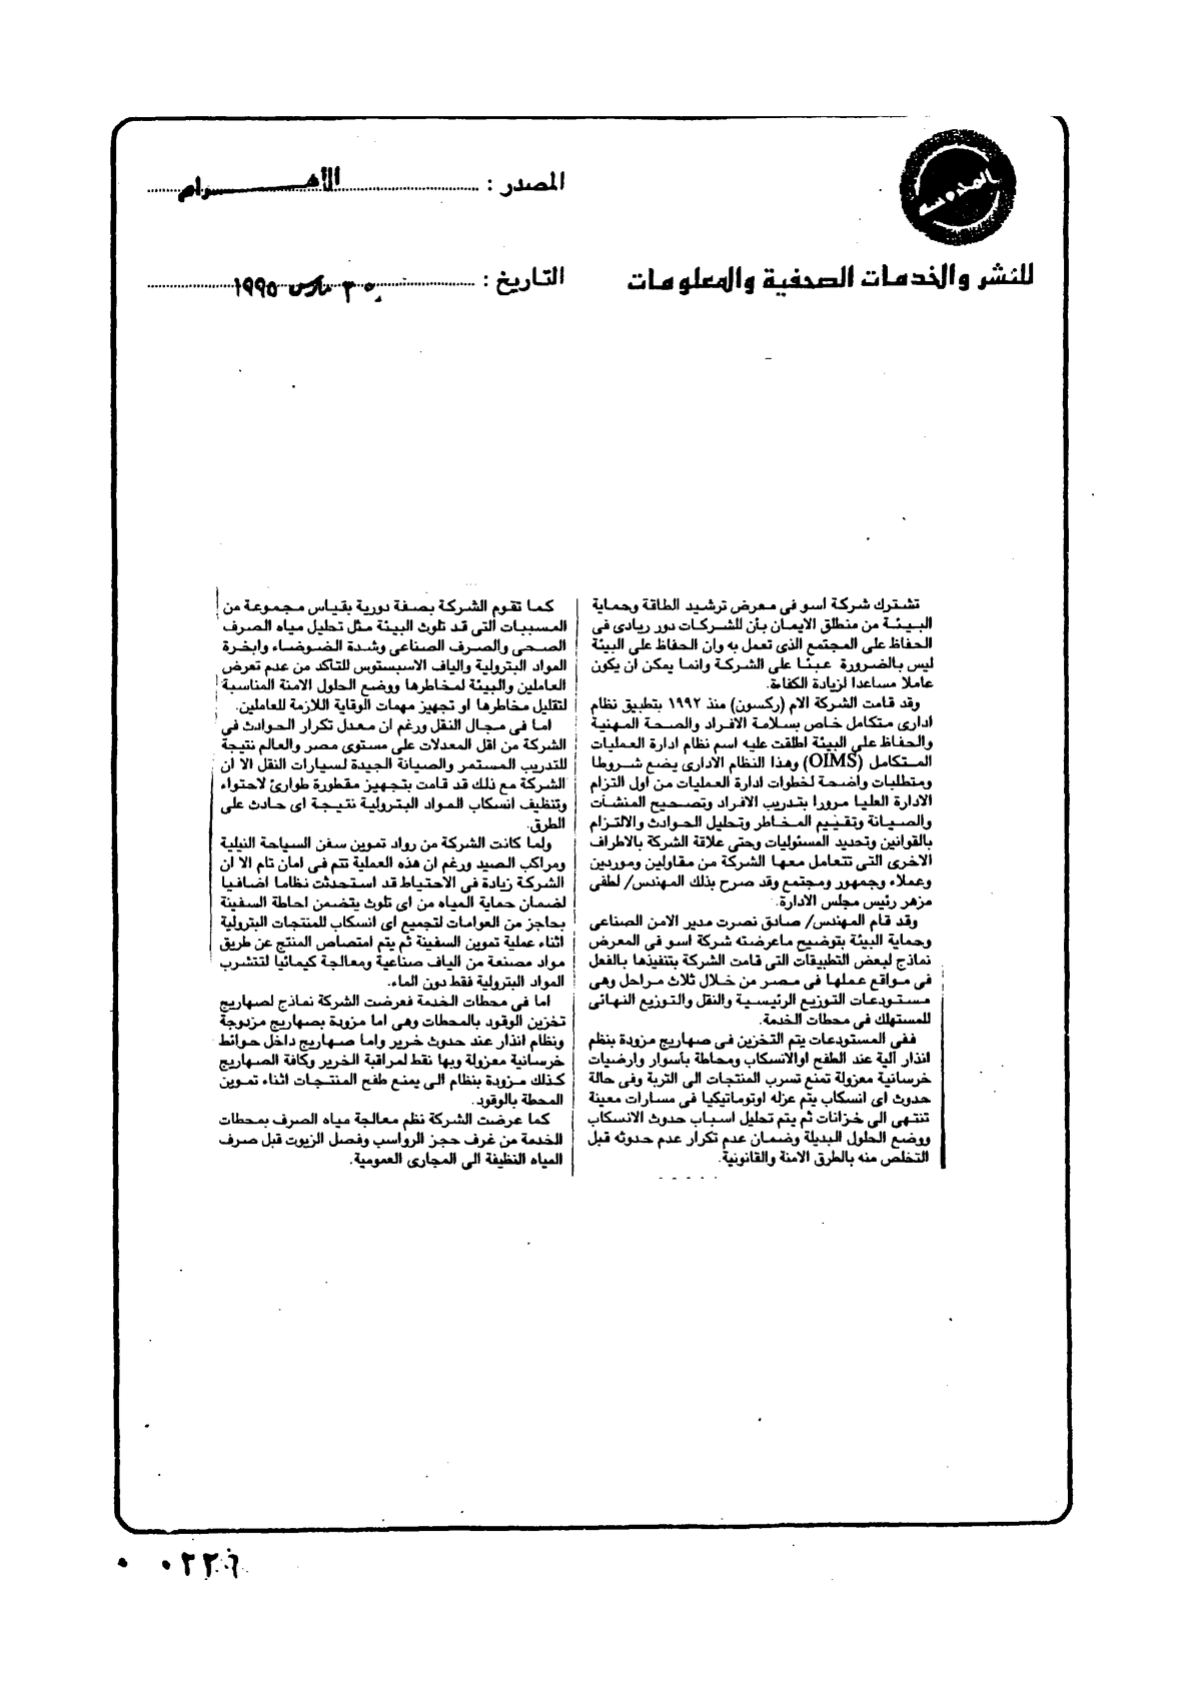 المحروسة
للنشر والخدمات الصحفية والمعلومات
المصدر : الأهرام
التاريخ : ٣٠ مارس ١٩٩٥
تشترك شركة اسو فى معرض ترشيد الطاقة وحماية
البيئة من منطلق الايمان بأن للشركات دور ريادى فى
الحفاظ على المجتمع الذى تعمل به وان الحفاظ على البيئة
ليس بالضرورة عبئا على الشركة وانما يمكن ان يكون
عاملا مساعدا لزيادة الكفاءة.
وقد قامت الشركة الام (ركسون) منذ ١٩٩٢ بتطبيق نظام
ادارى متكامل خاص بسلامة الافراد والصحة المهنية
والحفاظ على البيئة اطلقت عليه اسم نظام ادارة العمليات
المتكامل (OIMS) وهذا النظام الادارى يضع شروطا
ومتطلبات واضحة لخطوات ادارة العمليات من اول التزام
الادارة العليا مرورا بتدريب الافراد وتصحيح المنشآت
والصيانة وتقييم المخاطر وتحليل الحوادث والالتزام
بالقوانين وتحديد المسئوليات وحتى علاقة الشركة بالاطراف
الاخرى التى تتعامل معها الشركة من مقاولين وموردين
وعملاء وجمهور ومجتمع وقد صرح بذلك المهندس/ لطفى
مزهر رئيس مجلس الادارة.
وقد قام المهندس/ صادق نصرت مدير الامن الصناعى
وحماية البيئة بتوضيح ماعرضته شركة اسو فى المعرض
نماذج لبعض التطبيقات التى قامت الشركة بتنفيذها بالفعل
فى مواقع عملها فى مصر من خلال ثلاث مراحل وهى
مستودعات التوزيع الرئيسية والنقل والتوزيع النهائى
للمستهلك فى محطات الخدمة.
ففى المستودعات يتم التخزين فى صهاريج مزودة بنظم
انذار آلية عند الطفح اوالانسكاب ومحاطة بأسوار وارضيات
خرسانية معزولة تمنع تسرب المنتجات الى التربة وفى حالة
حدوث اى انسكاب يتم عزله اوتوماتيكيا فى مسارات معينة
تنتهى الى خزانات ثم يتم تحليل اسباب حدوث الانسكاب
ووضع الحلول البديلة وضمان عدم تكرار عدم حدوثه قبل
التخلص منه بالطرق الامنة والقانونية.
كما تقوم الشركة بصفة دورية بقياس مجموعة من
المسببات التى قد تلوث البيئة مثل تحليل مياه الصرف
الصحى والصرف الصناعى وشدة الضوضاء وابخرة
المواد البترولية والياف الاسبستوس للتأكد من عدم تعرض
العاملين والبيئة لمخاطرها ووضع الحلول الامنة المناسبة
لتقليل مخاطرها او تجهيز مهمات الوقاية اللازمة للعاملين.
اما فى مجال النقل ورغم ان معدل تكرار الحوادث فى
الشركة من اقل المعدلات على مستوى مصر والعالم نتيجة
للتدريب المستمر والصيانة الجيدة لسيارات النقل الا ان
الشركة مع ذلك قد قامت بتجهيز مقطورة طوارئ لاحتواء
وتنظيف انسكاب المواد البترولية نتيجة اى حادث على
الطرق.
ولما كانت الشركة من رواد تموين سفن السياحة النيلية
ومراكب الصيد ورغم ان هذه العملية تتم فى امان تام الا ان
الشركة زيادة فى الاحتياط قد استحدثت نظاما اضافيا
لضمان حماية المياه من اى تلوث يتضمن احاطة السفينة
بحاجز من العوامات لتجميع اى انسكاب للمنتجات البترولية
اثناء عملية تموين السفينة ثم يتم امتصاص المنتج عن طريق
مواد مصنعة من الياف صناعية ومعالجة كيمائيا لتتشرب
المواد البترولية فقط دون الماء.
اما فى محطات الخدمة فعرضت الشركة نماذج لصهاريج
تخزين الوقود بالمحطات وهى اما مزودة بصهاريج مزدوجة
ونظام انذار عند حدوث خرير واما صهاريج داخل حوائط
خرسانية معزولة وبها نقط لمراقبة الخرير وكافة الصهاريج
كذلك مزودة بنظام الى يمنع طفح المنتجات اثناء تموين
المحطة بالوقود.
كما عرضت الشركة نظم معالجة مياه الصرف بمحطات
الخدمة من غرف حجز الرواسب وفصل الزيوت قبل صرف
المياه النظيفة الى المجارى العمومية.